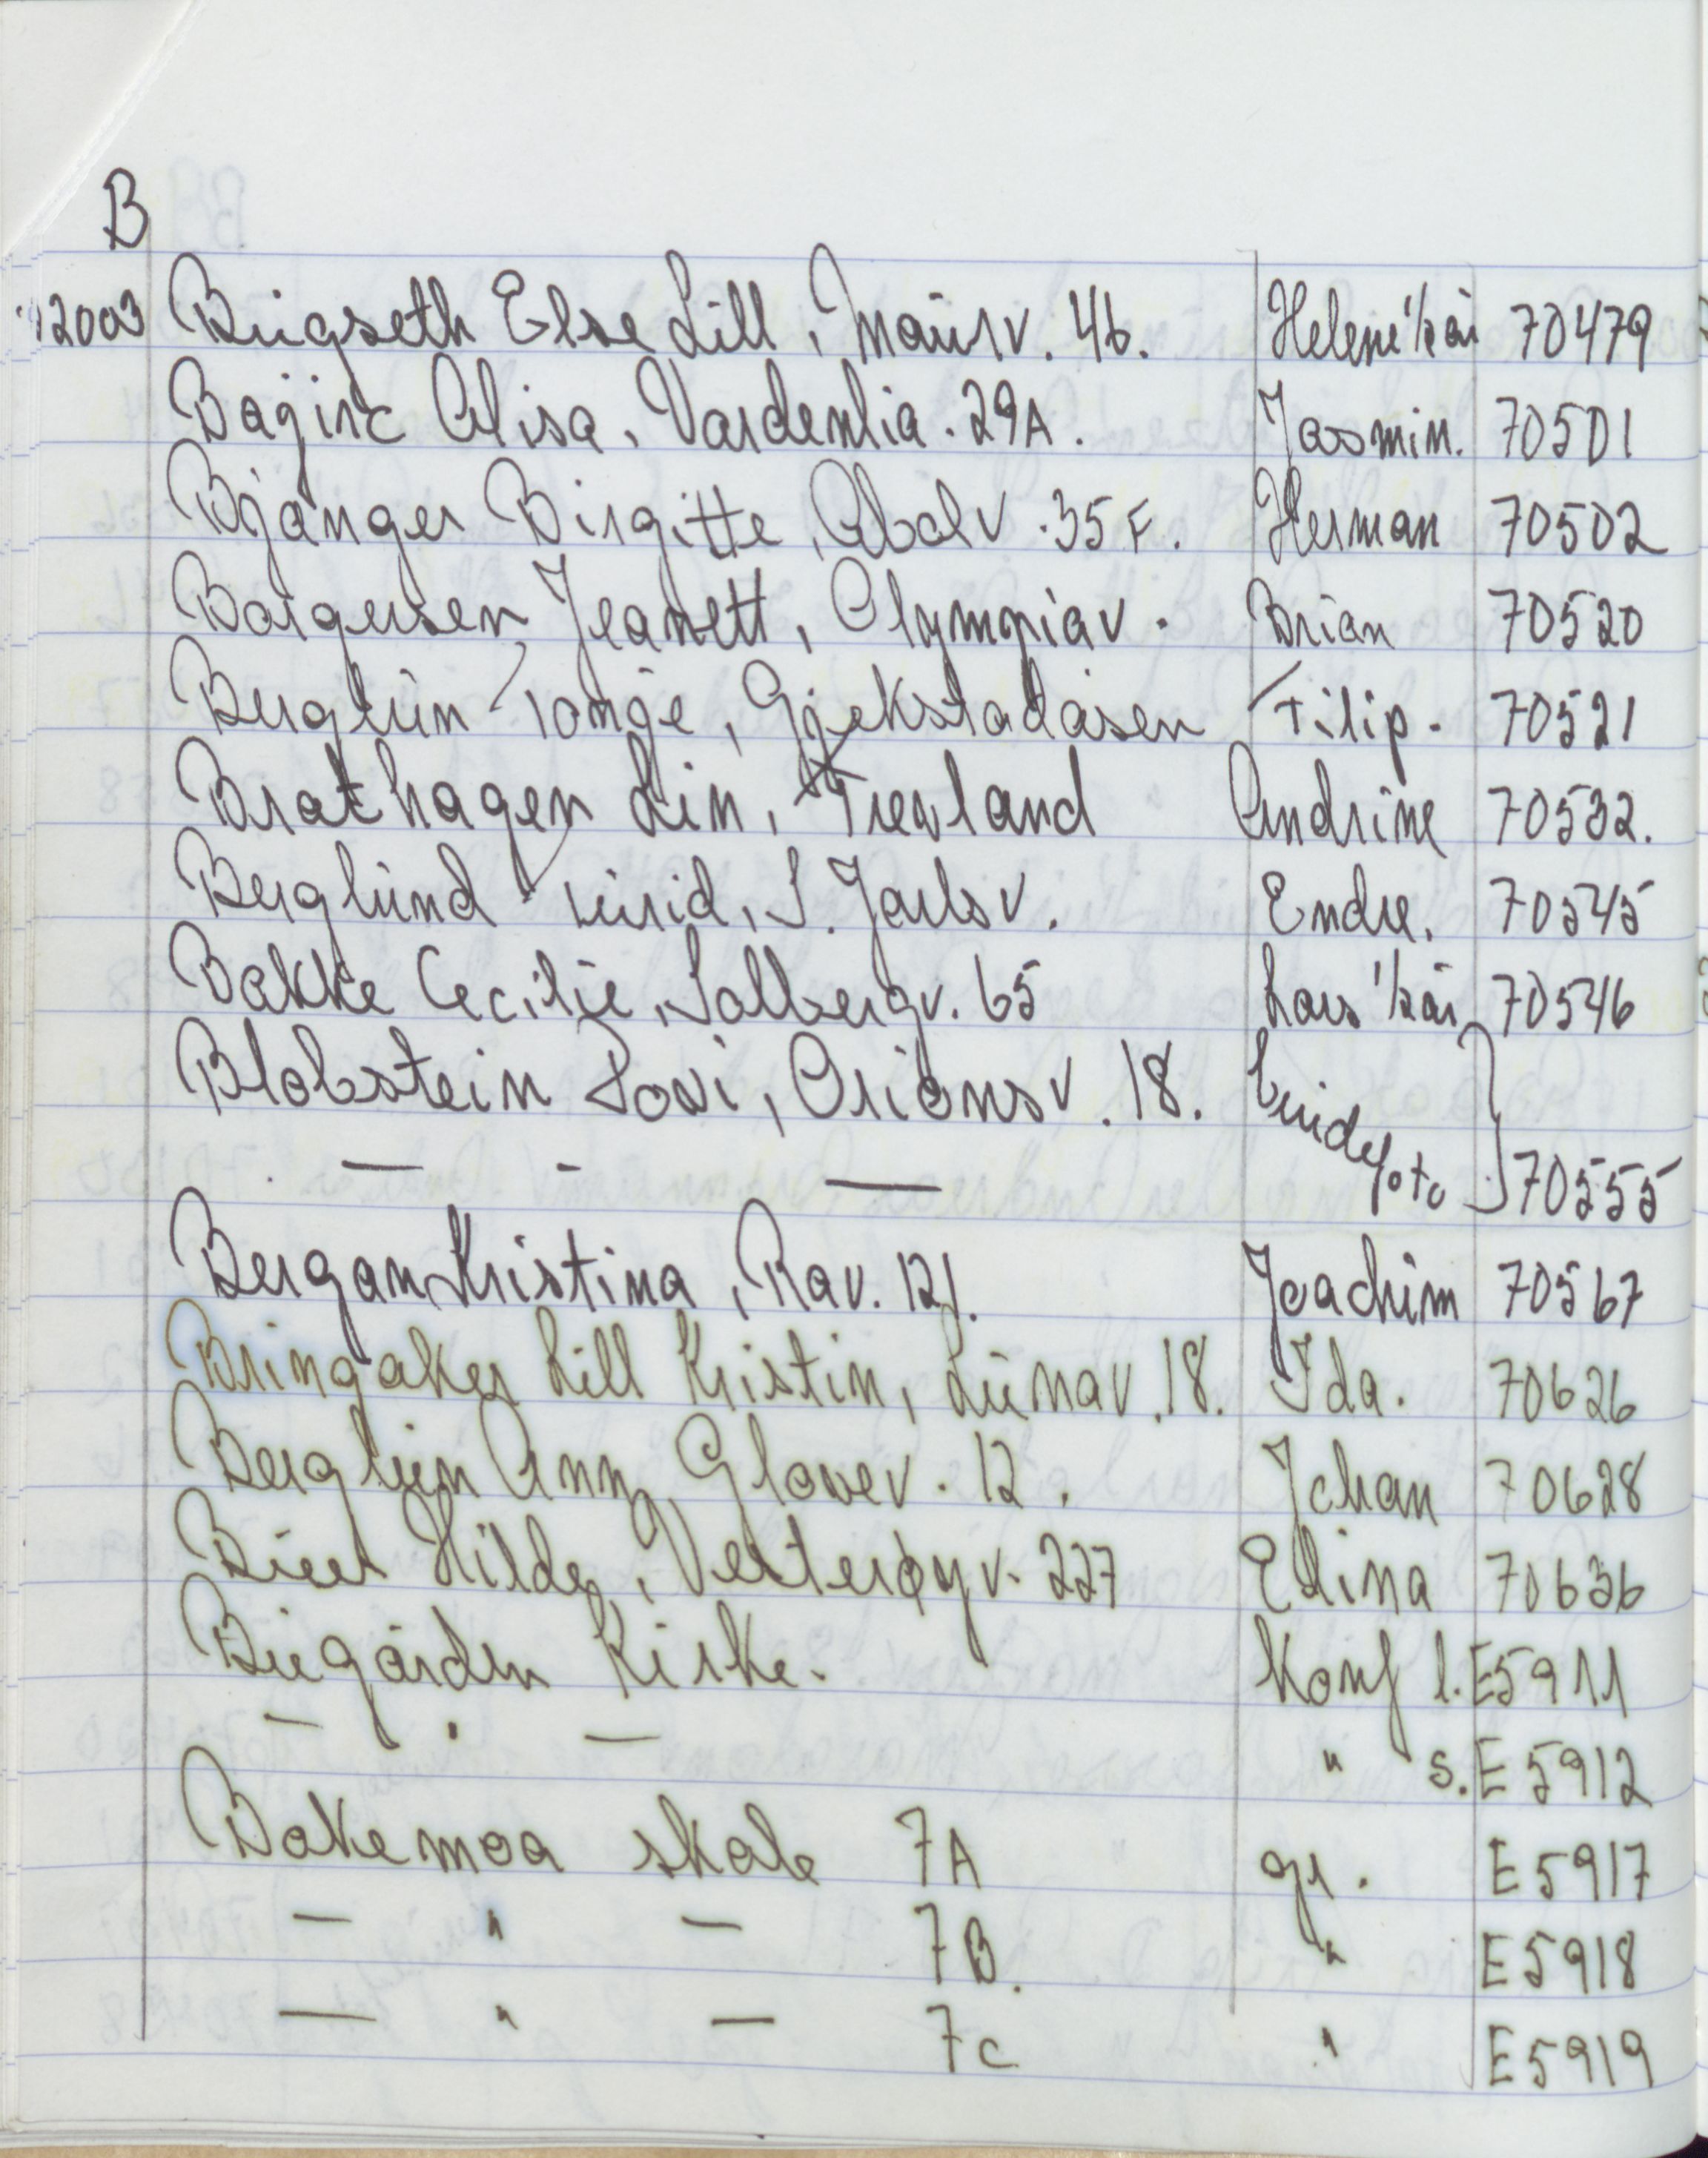 B
2003 Bugseth Else Lill, Maurv. 46. Helene 1/2 år 70479
Bagiric Alisa, Vardenlia. 29A. Jasmin. 70501
Bjånger Birgitte, Abolv. 35 F. Herman 70502
Borgersen Jeanett, Olympiav. Brian 70520
Berglun Tonje, Gjekstadåsen Filip. 70521
Brathagen Lin, Trevland Andrine 70532.
Berglund Turid, S. Jarlsv. Endre. 70545
Bakke Cecilie, Solbergv. 65 Lars 1/2 år 70546
Blobstein Roxi, Orionsv. 18. hundefoto } 70555
— - —
Bergan Kristina, Rav. 121. Joachim 70567
Bringaker Lill Kristin, Lunav. 18. Ida. 70626
Berglun Ann, Glosev. 12. Johan 70628
Hilde, Vesterøyv. 227 Elina 70636
Bugården Kirke. Konf l. E5911
— " — " s. E5912
Bokemoa skole 7A gr. E5917
— " — 7B. " E5918
— " — 7c " E5919